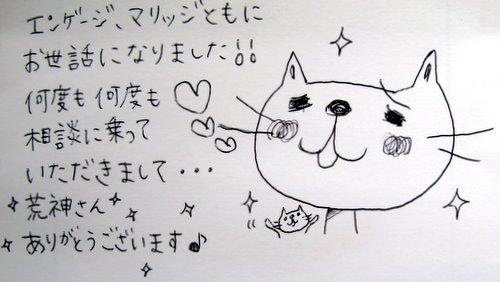 エンゲージ、マリッジともに
お世話になりました!!
何度も何度も
相談に乗って
いただきまして・・・
荒神さん
ありがとうございます♪